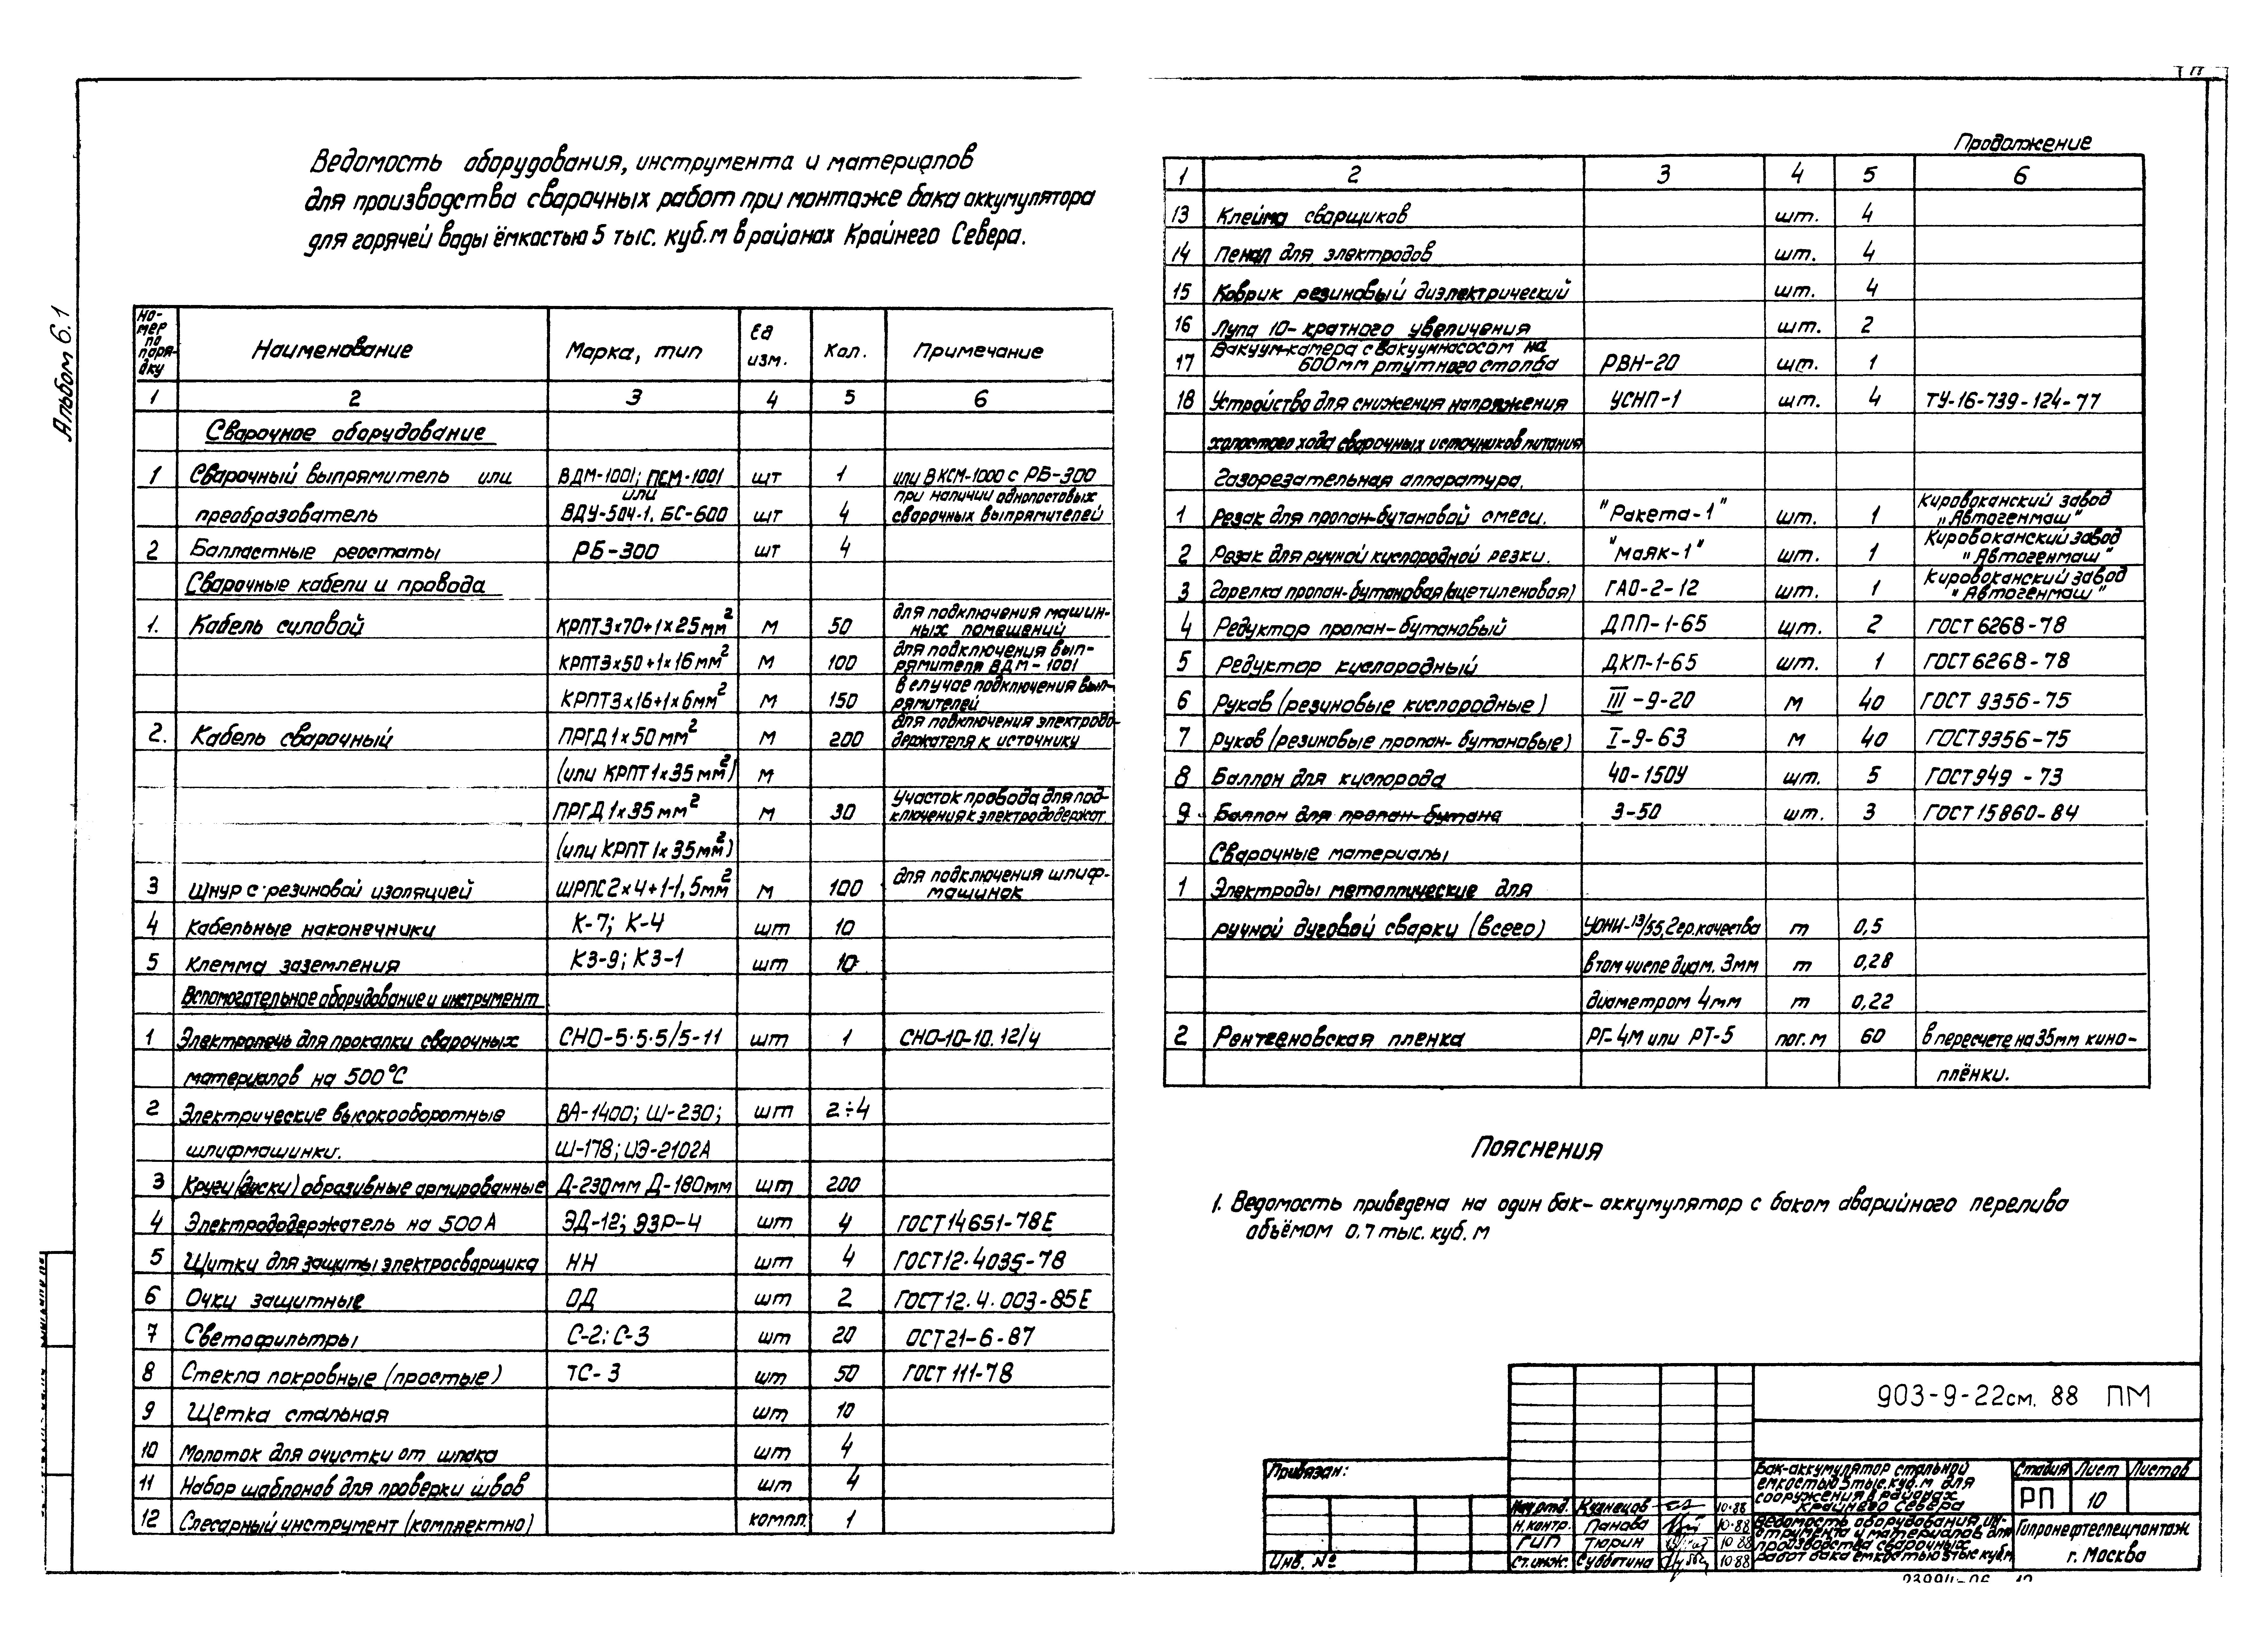 Альбом 6.1
Ведомость оборудования, инструмента и материалов
для производства сварочных работ при монтаже бака аккумулятора
для горячей воды ёмкостью 5 тыс. куб.м в районах Крайнего Севера.
Но-
мер
по
поря-
дку
Наименование
Марка, тип
Ед
изм.
Кол.
Примечание
1 2 3 4 5 6
Сварочное оборудование
1 Сварочный выпрямитель или ВДМ-1001; ПСМ-1001 шт 1 или ВКСМ-1000 с РБ-300
или
преобразователь ВДУ-504-1. БС-600 шт 4 при наличии однопостовых
сварочных выпрямителей
2 Балластные реостаты РБ-300 шт 4
Сварочные кабели и провода
1. Кабель силовой КРПТ 3х70+1х25мм² м 50 для подключения машин-
ных помещений
КРПТ3х50+1х16мм² м 100 для подключения вып-
рямителя ВДМ-1001
КРПТ3х16+1х6мм² м 150 в случае подключения вып-
рямителей
2. Кабель сварочный ПРГД 1х50мм² м 200 для подключения электродо-
держателя к источнику
(или КРПТ 1х35мм²) м
ПРГД 1х35мм² м 30 Участок провода для под-
ключения к электрододержат.
(или КРПТ 1х35мм²)
3 Шнур с резиновой изоляцией ШРПС2х4+1-1,5мм² м 100 для подключения шлиф-
машинок
4 Кабельные наконечники К-7; К-4 шт 10
5 Клемма заземления КЗ-9; КЗ-1 шт 10
Вспомогательное оборудование и инструмент
1 Электропечь для прокалки сварочных СНО-5·5·5/5-11 шт 1 СНО-10-10.12/4
материалов на 500°С
2 Электрические высокооборотные ВА-1400; Ш-230; шт 2÷4
шлифмашинки. Ш-178; ИЭ-2102А
3 Круги (диски) образивные армированные Д-230мм Д-180мм шт 200
4 Электрододержатель на 500А ЭД-12; ЭЗР-4 шт 4 ГОСТ 14651-78Е
5 Щитки для защиты электросварщика НН шт 4 ГОСТ12.4035-78
6 Очки защитные ОД шт 2 ГОСТ12.4.003-85Е
7 Светофильтры С-2; С-3 шт 20 ОСТ21-6-87
8 Стекла покровные (простые) ТС-3 шт 50 ГОСТ 111-78
9 Щетка стальная шт 10
10 Молоток для очистки от шлака шт 4
11 Набор шаблонов для проверки швов шт 4
12 Слесарный инструмент (комплектно) компл. 1
Продолжение
1 2 3 4 5 6
13 Клейма сварщиков шт. 4
14 Пенал для электродов шт. 4
15 Коврик резиновый диэлектрический шт. 4
16 Лупа 10-кратного увеличения шт. 2
17 Вакуум-камера с вакуумнасосом на
600мм ртутного столба РВН-20 шт. 1
18 Устройство для снижения напряжения УСНП-1 шт. 4 ТУ-16-739-124-77
холостого хода сварочных источников питания
Газорезательная аппаратура.
1 Резак для пропан-бутановой смеси. "Ракета-1" шт. 1 Кировоканский завод
"Автогенмаш"
2 Резак для ручной кислородной резки. "Маяк-1" шт. 1 Кировоканский завод
"Автогенмаш"
3 Горелка пропан-бутановая (ацетиленовая) ГАО-2-12 шт. 1 Кировоканский завод
"Автогенмаш"
4 Редуктор пропан-бутановый ДПП-1-65 шт. 2 ГОСТ 6268-78
5 Редуктор кислородный ДКП-1-65 шт. 1 ГОСТ 6268-78
6 Рукав (резиновые кислородные) III-9-20 м 40 ГОСТ 9356-75
7 Рукав (резиновые пропан-бутановые) I-9-63 м 40 ГОСТ9356-75
8 Баллон для кислорода 40-150У шт. 5 ГОСТ949-73
9 Баллон для пропан-бутана 3-50 шт. 3 ГОСТ 15860-84
Сварочные материалы
1 Электроды металлические для
ручной дуговой сварки (всего) УОНИ-13/55, 2гр. качества т 0,5
в том числе диам. 3мм т 0,28
диаметром 4мм т 0,22
2 Рентгеновская пленка РГ-4М или РТ-5 пог.м 60 в пересчете на 35мм кино-
плёнки.
Пояснения
1. Ведомость приведена на один бак-аккумулятор с баком аварийного перелива
объёмом 0,7 тыс. куб. м
903-9-22см. 88 ПМ
Привязан:
Инв. №
Нач.отд. Кузнецов 10.88
Н.контр. Панова 10.88
ГИП Тюрин 10.88
Ст.инж. Субботина 10.88
Бак-аккумулятор стальной
емкостью 5 тыс. куб. м для
сооружения в районах
Крайнего Севера
Стадия Лист Листов
РП 10
Ведомость оборудования, ин-
струмента и материалов для
производства сварочных
работ бака емкостью 5 тыс куб.м
Гипронефтеспецмонтаж
г. Москва